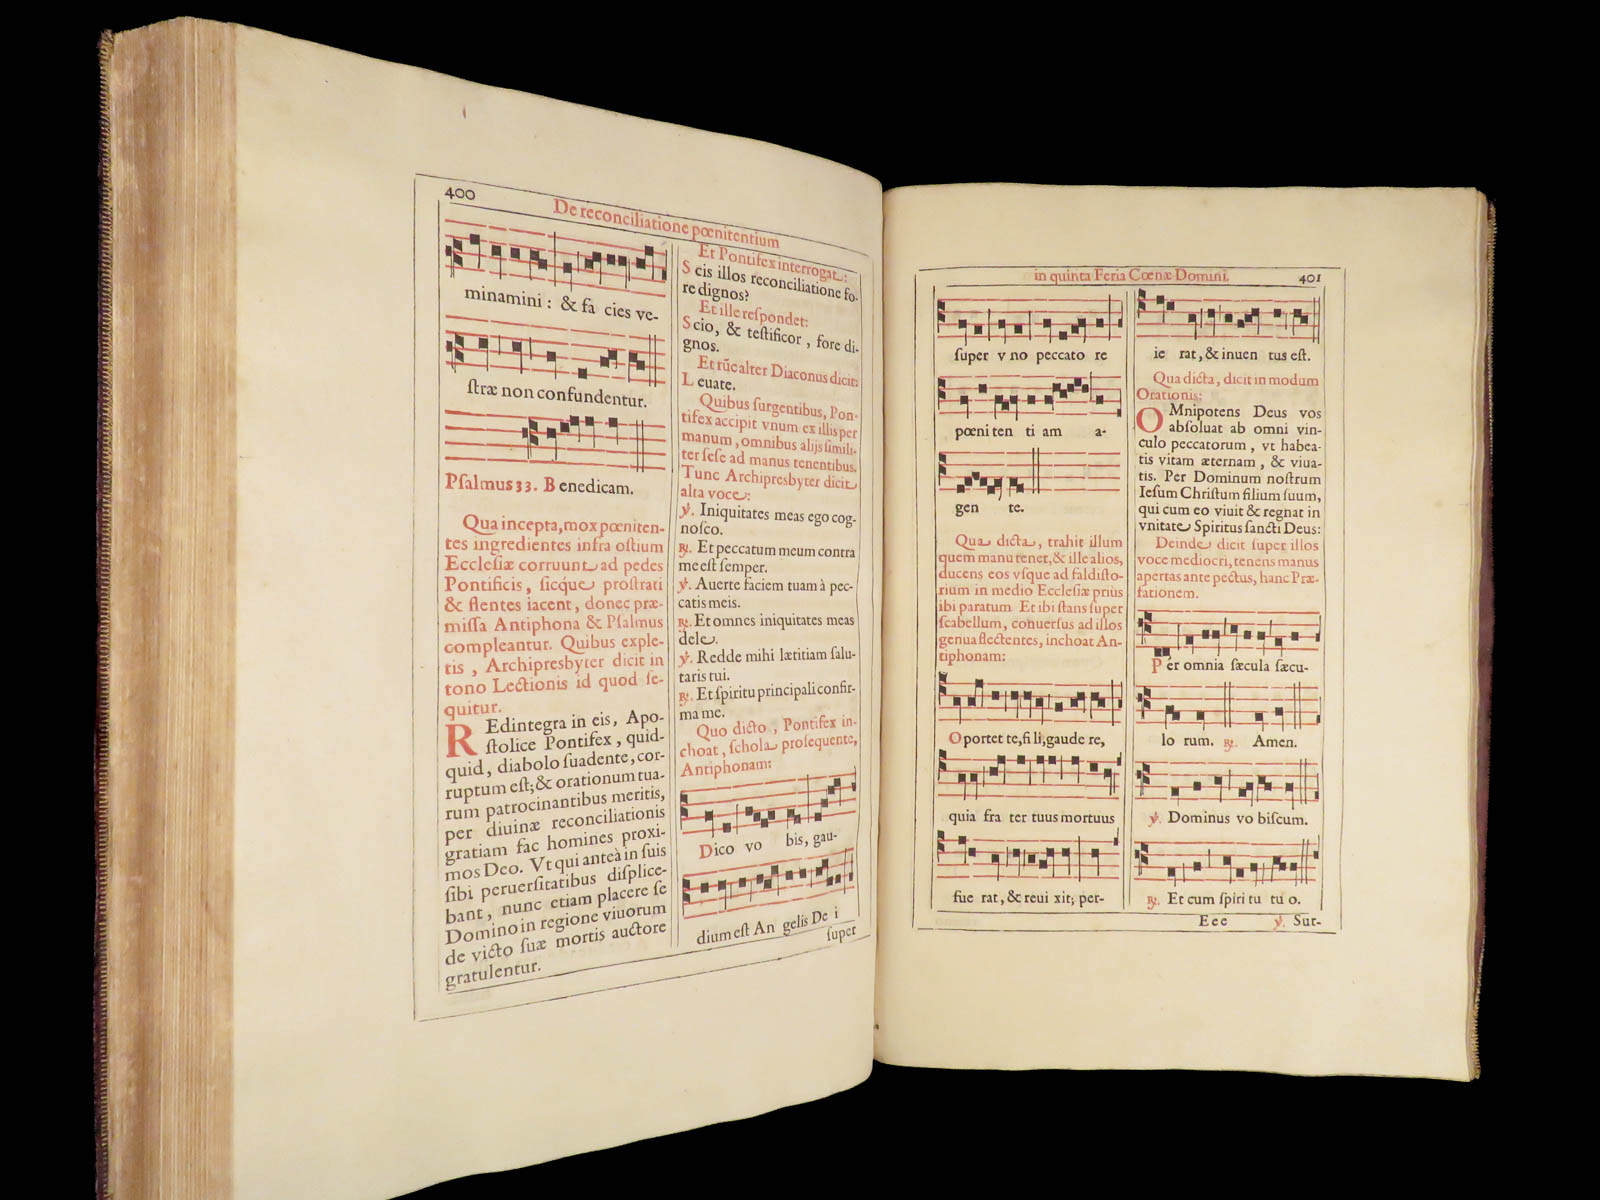 400
De reconciliatione pœnitentium
minamini : & fa cies ve-
ſtræ non confundentur.
Pſalmus 33. B enedicam.
Qua incepta, mox pœniten-
tes ingredientes infra oſtium
Eccleſiæ corruunt ad pedes
Pontificis, ſicque proſtrati
& flentes iacent, donec præ-
miſſa Antiphona & Pſalmus
compleantur. Quibus exple-
tis, Archipresbyter dicit in
tono Lectionis id quod ſe-
quitur.
REdintegra in eis, Apo-
ſtolice Pontifex, quid-
quid, diabolo ſuadente, cor-
ruptum eſt; & orationum tua-
rum patrocinantibus meritis,
per diuinæ reconciliationis
gratiam fac homines proxi-
mos Deo. Vt qui anteà in ſuis
ſibi peruerſitatibus diſplice-
bant, nunc etiam placere ſe
Domino in regione viuorum
de victo ſuæ mortis auctore
gratulentur.
Et Pontifex interrogat:
S cis illos reconciliatione fo-
re dignos?
Et ille reſpondet:
Scio, & teſtificor, fore di-
gnos.
Et tūc alter Diaconus dicit:
L euate.
Quibus ſurgentibus, Pon-
tifex accipit vnum ex illis per
manum, omnibus alijs ſimili-
ter ſeſe ad manus tenentibus.
Tunc Archipresbyter dicit
alta voce:
℣. Iniquitates meas ego cog-
noſco.
℟. Et peccatum meum contra
me eſt ſemper.
℣. Auerte faciem tuam à pec-
catis meis.
℟. Et omnes iniquitates meas
dele.
℣. Redde mihi lætitiam ſalu-
taris tui.
℟. Et ſpiritu principali confir-
ma me.
Quo dicto, Pontifex in-
choat, ſchola proſequente,
Antiphonam:
Dico vo bis, gau-
dium eſt An gelis De i
ſuper
in quinta Feria Cœnæ Domini.
401
ſuper v no peccato re
pœni ten ti am a-
gen te.
Qua dicta, trahit illum
quem manu tenet, & ille alios,
ducens eos vſque ad faldiſto-
rium in medio Eccleſiæ priùs
ibi paratum. Et ibi ſtans ſuper
ſcabellum, conuerſus ad illos
genua flectentes, inchoat An-
tiphonam:
Oportet te, fi li, gaude re,
quia fra ter tuus mortuus
fue rat, & reui xit; per-
ie rat, & inuen tus eſt.
Qua dicta, dicit in modum
Orationis:
OMnipotens Deus vos
abſoluat ab omni vin-
culo peccatorum, vt habea-
tis vitam æternam, & viua-
tis. Per Dominum noſtrum
Ieſum Chriſtum filium ſuum,
qui cum eo viuit & regnat in
vnitate Spiritus ſancti Deus:
Deinde dicit ſuper illos
voce mediocri, tenens manus
apertas ante pectus, hanc Præ-
fationem.
Pér omnia ſæcula ſæcu-
lo rum. ℟. Amen.
℣. Dominus vo biſcum.
℟. Et cum ſpiri tu tu o.
Eee ℣. Sur-